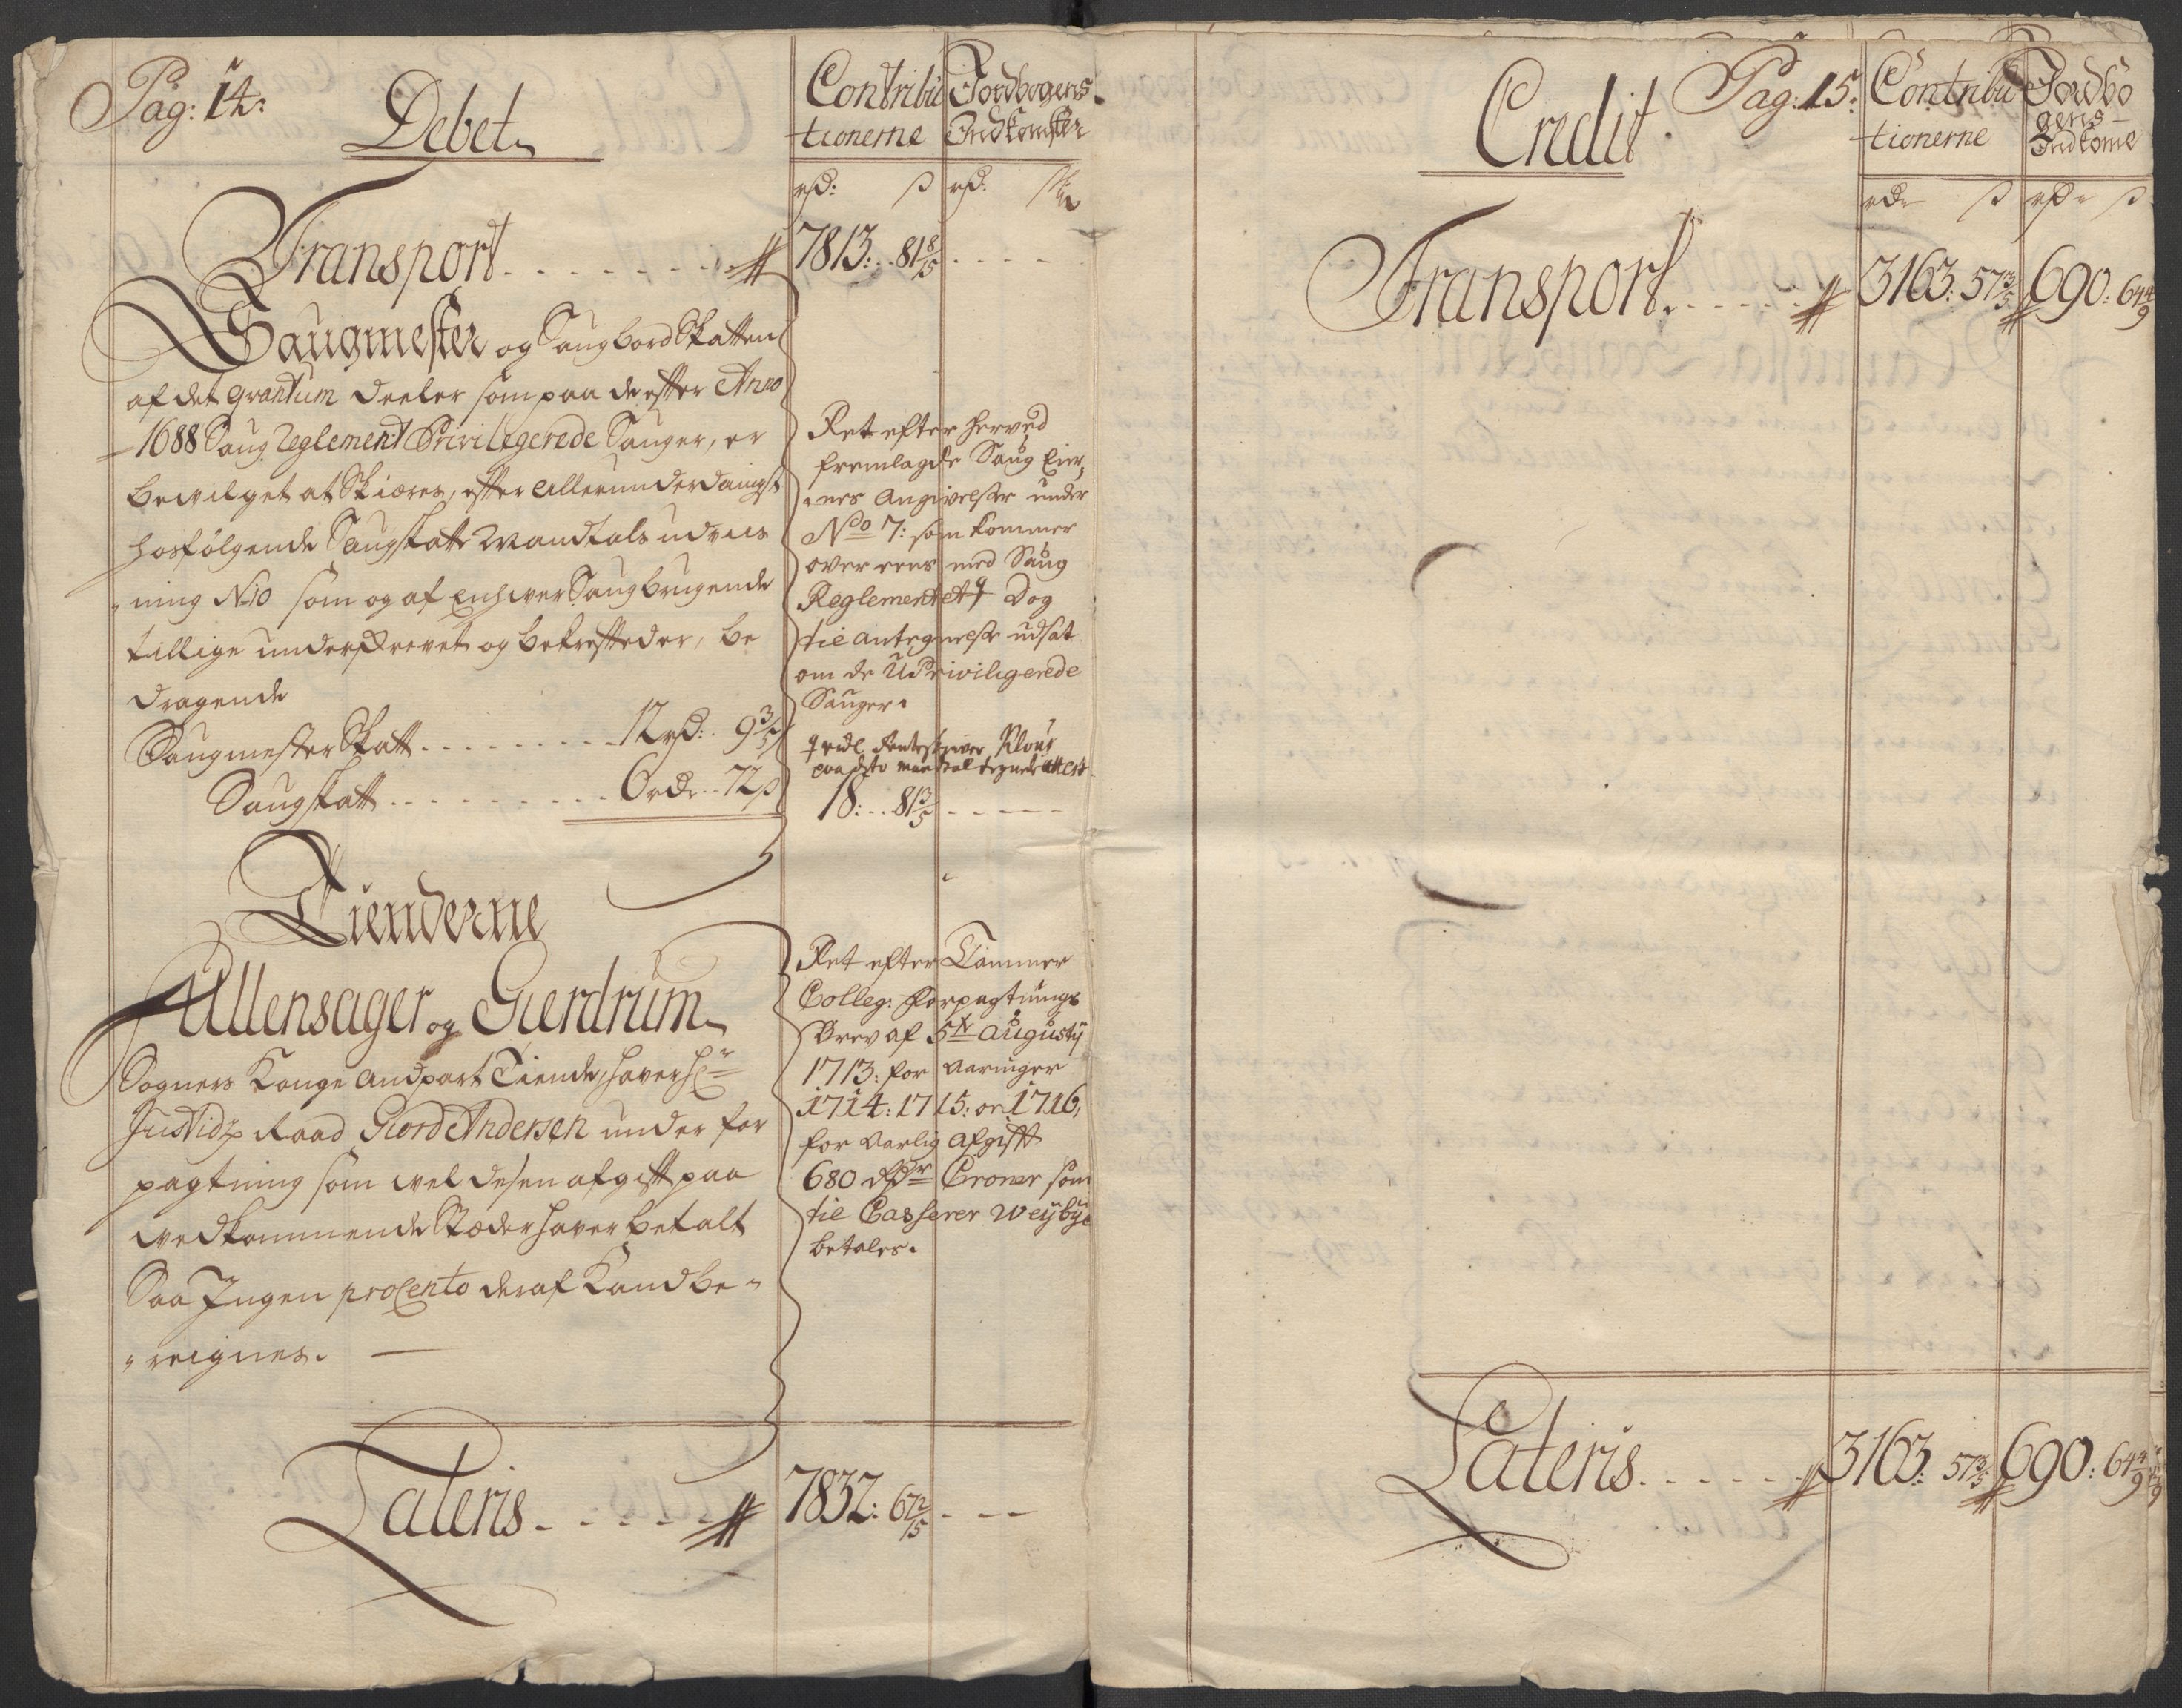 Pag: 14:
Debet
Contribu
tionerne
Jordbogens
Indkomster
rd: ß rd: ß
Transport 7813: 81 8/15
Saugmester og Saugbord Skatten
af det qvantum Deeler som paa de efter Anno
1688 Saug Reglement Privilegerede Sauger, er
bevilget at Skiæres, efter allerunderdanigst
hosfølgende Saugskatte Mandtals udviis
ning No 10 som og af Enhver Saugbrugende
tillige underskrevet og bekrefted er, be
dragende
Saugmester Skatt 12 rd: 9 3/5
Saugskatt 6 rd: 72 ß
Ret efter herved
fremlagde Saug Eier,
nes Angivelser under
No 7: som kommer
over eens med Saug
Reglementet Dog
til antegnelse udsat
om de Uprivilegerede
Sauger.
18: 81 3/5
Tienderne
Ullensager og Gierdrum
Sogners Konge Andpart Tiende, haver Hr
Justidz Raad Giord Andersen under for
pagtning som vel desen afgift paa
vedkommende Stæder haver betalt
Saa Ingen procento deraf Kand be
reignes.
Ret efter Cammer
Colleg: Forpagtnings
Brev af 5te Augustij
1713: for Aaringer
1714: 1715: or 1716,
for Aarlig Afgift
680 rdr Croner som
til Casserer Weybye
betales.
Lateris 7832: 67 2/15
Credit
Pag: 15:
Contribu
tionerne
Jordbo
gens
Indkome
rd ß rd ß
Transport 3163: 57 3/5 690: 64 4/9
Lateris 3163: 57 3/5 690: 64 4/9